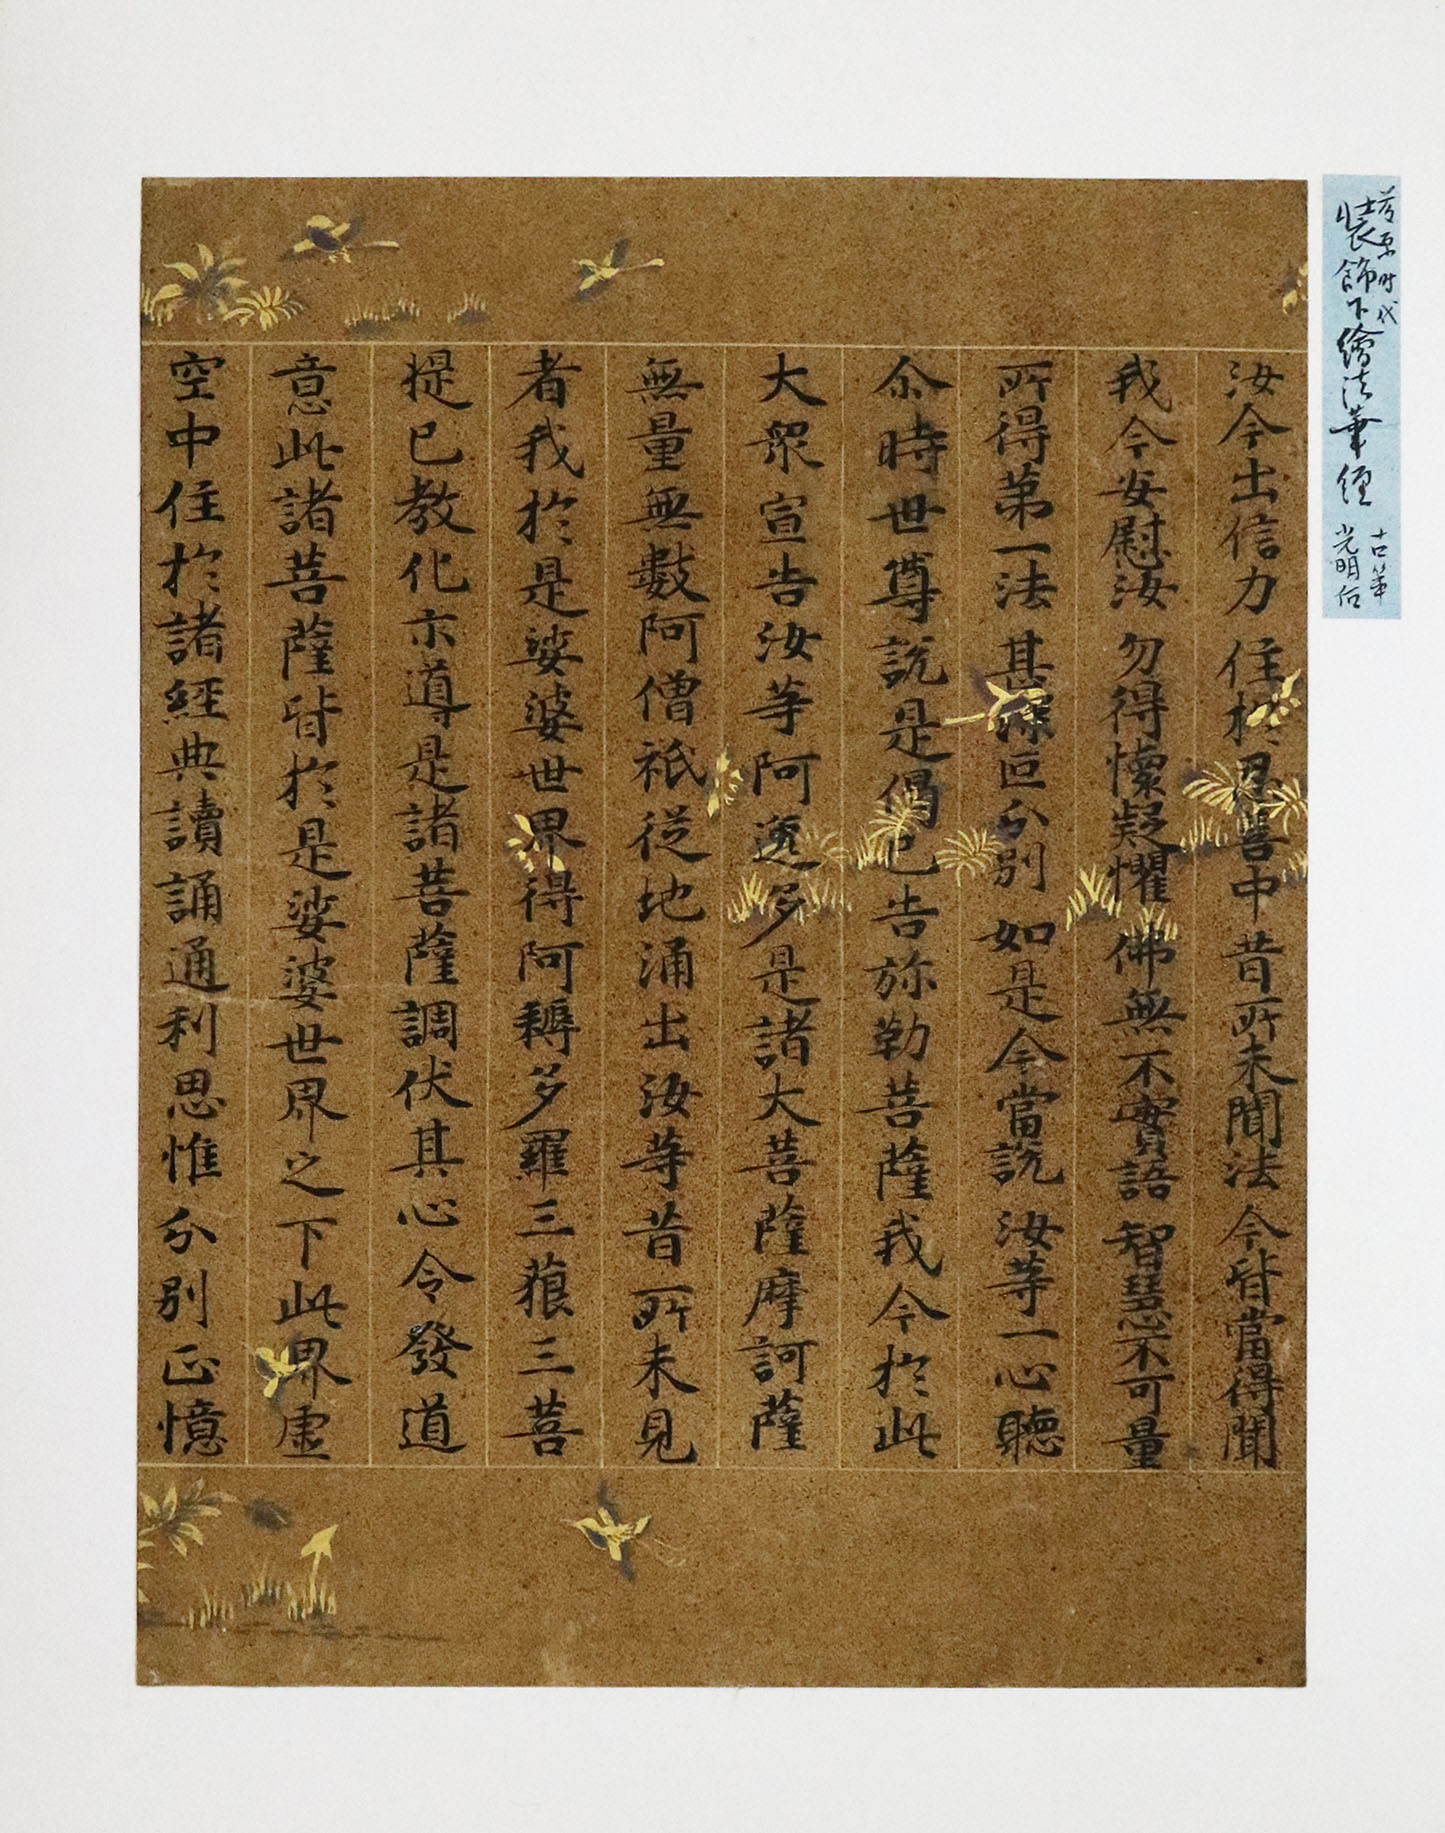 藤原時代
装飾下繪法華経
古筆
光明后
汝今出信力 住於忍善中 昔所未聞法 今皆當得聞
我今安慰汝 勿得懷疑懼 佛無不實語 智慧不可量
所得第一法 甚深叵分別 如是今當說 汝等一心聽
尒時世尊說是偈已告弥勒菩薩我今於此
大衆宣告汝等阿逸多是諸大菩薩摩訶薩
無量無數阿僧祇從地涌出汝等昔所未見
者我於是娑婆世界得阿耨多羅三藐三菩
提已教化示導是諸菩薩調伏其心令發道
意此諸菩薩皆於是娑婆世界之下此界虛
空中住於諸經典讀誦通利思惟分別正憶